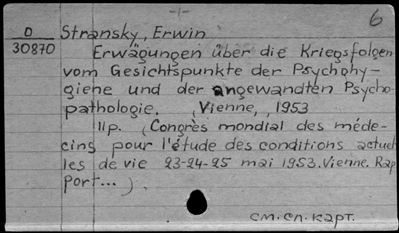 6
D Stransky, Erwin
30870 Erwägungen über die Kriegsfolgen
vom Gesichtspunkte der Psychohy-
giene und der angewandten Psycho-
pathologie. Vienne, 1953
11p. (Congrès mondial des méde-
cins pour l'étude des conditions actuel
les de vie 23-24-25 mai 1953. Vienne. Rap
port...).
см. сл. карт.